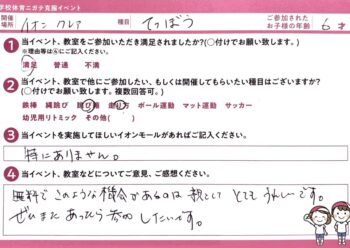 学校体育ニガテ克服イベント
開催場所 イオンクレア 種目 てつぼう ご参加されたお子様の年齢 6才
1 当イベント、教室をご参加いただき満足されましたか?(〇付けでお願い致します。)
※理由等は④にご記入ください。
満足 普通 不満
2 当イベント、教室で他にご参加したい、もしくは開催してもらいたい種目はございますか?
(〇付けでお願い致します。複数回答可。)
鉄棒 縄跳び 跳び箱 走り方 ボール運動 マット運動 サッカー
幼児用リトミック その他( )
3 当イベントを実施してほしいイオンモールがあればご記入ください。
特にありません。
4 当イベント、教室などについてご意見、ご感想ください。
無料でこのような機会があるのは親としてとてもうれしいです。
ぜひまたあったら参加したいです。